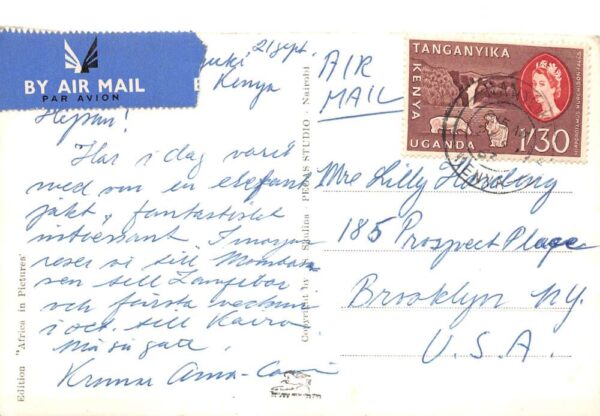 BY AIR MAIL
PAR AVION
21 sept.
Kenya
Hejsan!
Har i dag varit
med om en elefant
jakt, fantastiskt
intressant. I morgon
reser vi till Mombas
sen till Zanzibar
och första veckan
i oct. till Kairo
Må så gott.
Kramar Anna-
Edition "Africa in Pictures"
Copyright by S. Skulina PEGAS STUDIO - Nairobi
AIR
MAIL
TANGANYIKA
KENYA
UGANDA
1/30
KENYA
Mrs Lilly Harding
185 Prospect Place
Brooklyn N.Y.
U.S.A.